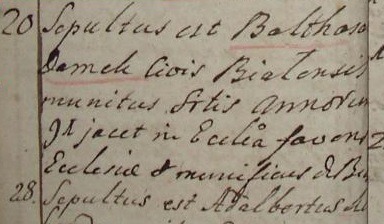 20 Sepultus est Balthasa
Damek Civis Bialensis
munitus Srtis annorum
jacet in Ecclia favens
Ecclesiæ & munificus de Be
28. Sepultus est Adalbertus